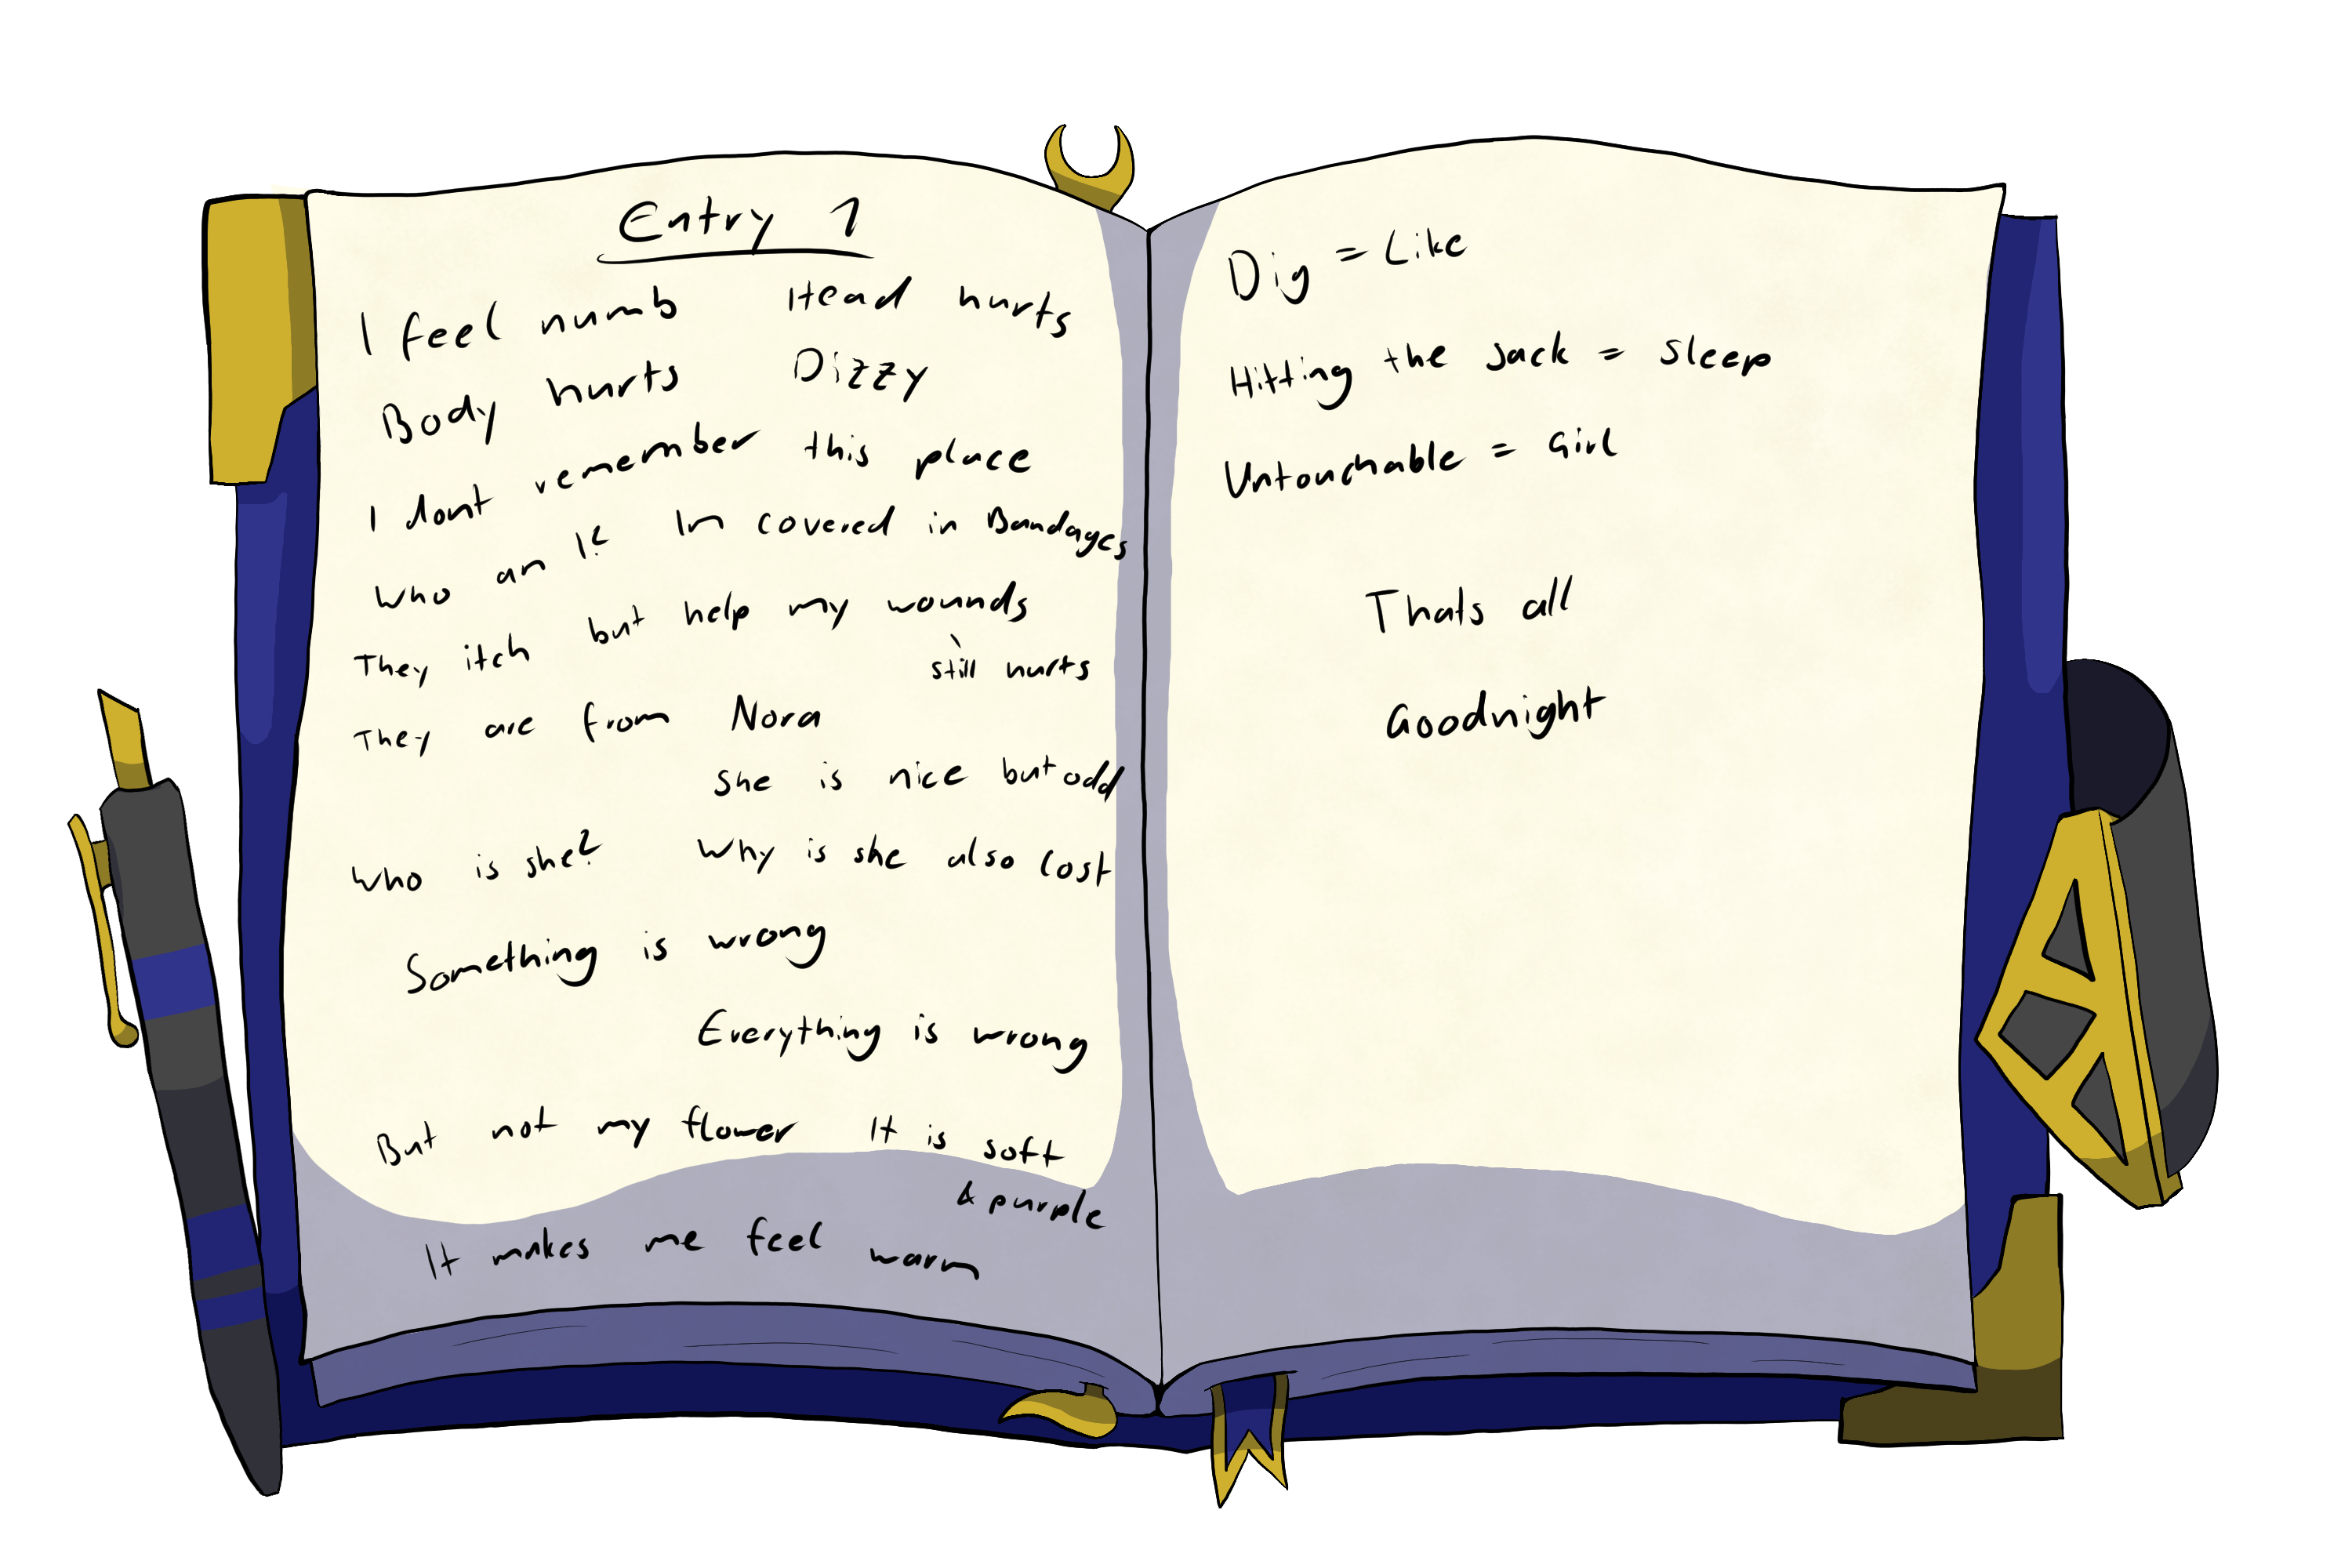 Entry 1
I feel numb Head hurts
Body hurts Dizzy
I dont remember this place
Who am I? Im covered in Bandages
They itch but help my wounds
still hurts
They are from Nora
She is nice but odd
Who is she? Why is she also lost
Something is wrong
Everything is wrong
But not my flower It is soft
& purple
It makes me feel warm
Dig = Like
Hitting the jack = Sleep
Untouchable = Girl
Thats all
Goodnight